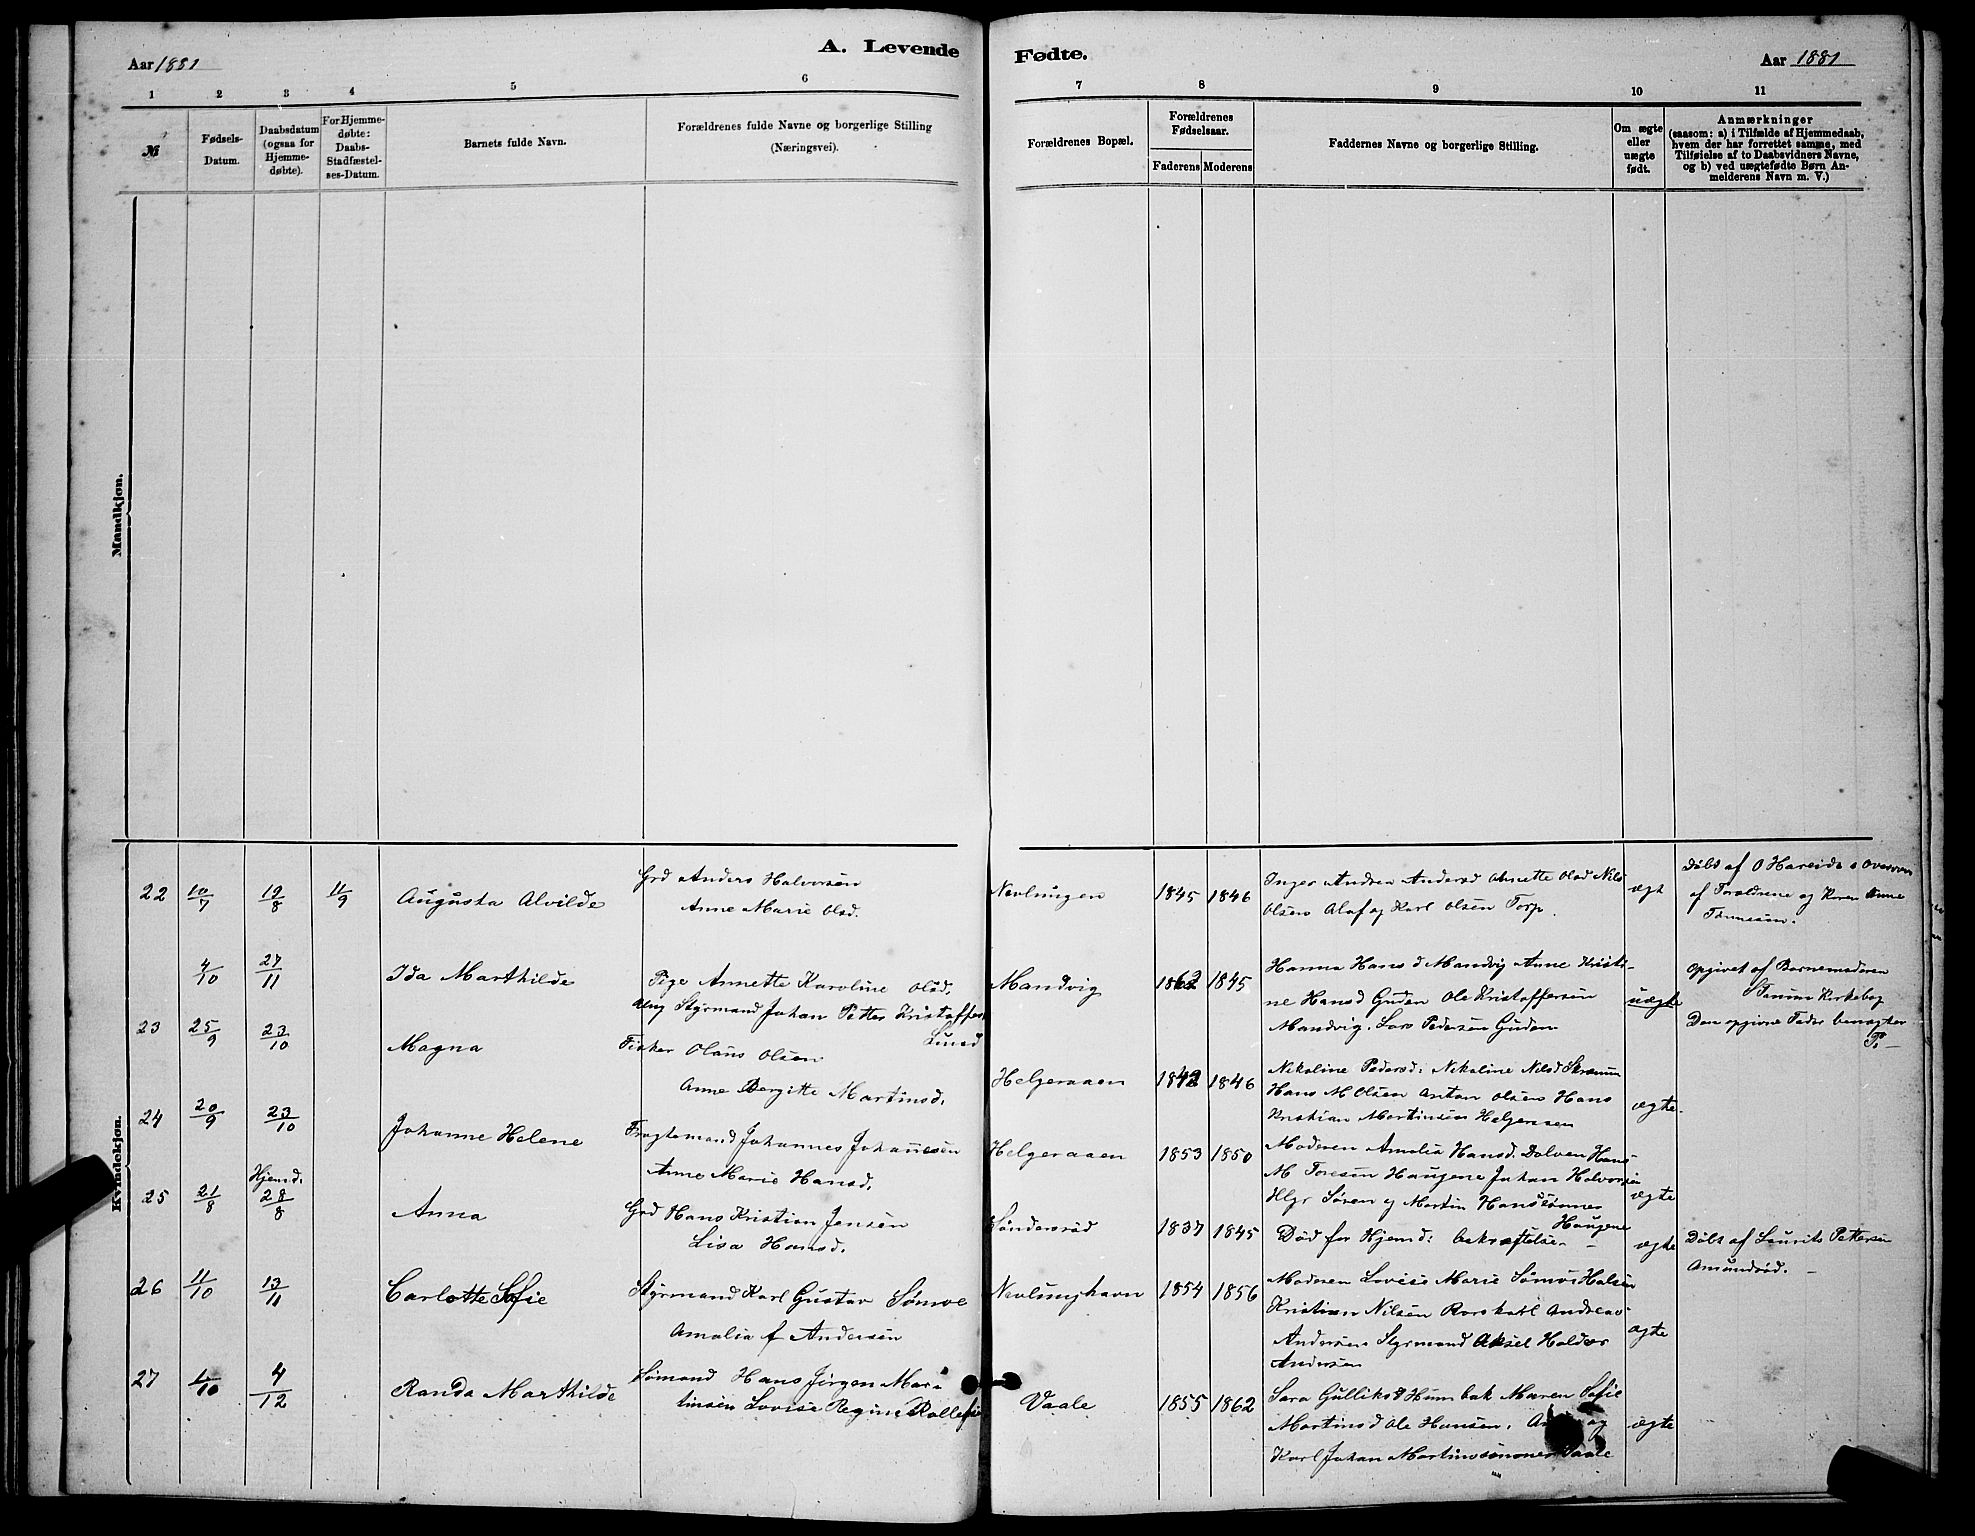 A. Levende Fødte.
Aar 1881
Aar 1881
1 2 3 4 5 6 7 8 9 10 11
№
Fødsels-
Datum.
Daabsdatum
(ogsaa for
Hjemme-
døbte).
For Hjemme-
døbte:
Daabs-
Stadfæstel-
ses-Datum.
Barnets fulde Navn.
Forældrenes fulde Navne og borgerlige Stilling
(Næringsvei).
Forældrenes Bopæl.
Forældrenes
Fødselsaar.
Faderens Moderens
Faddernes Navne og borgerlige Stilling.
Om ægte
eller
uægte
født.
Anmærkninger
(saasom: a) i Tilfælde af Hjemmedaab,
hvem der har forrettet samme, med
Tilføielse af to Daabsvidners Navne,
og b) ved uægtefødte Børn An-
melderens Navn m. V.)
Mandkjøn.
Kvindekjøn.
22 10/7 12/8 11/9 Augusta Alvilde
Grd Anders Halvorsen
Anne Marie Olsd.
Nevlungen 1845 1846
Inger Andrea Andersd Annette Olsd Nils
Olsen Olaf og Karl Olsen Torp.
ægt
Døbt af O Hareide
af Forældrene og Karen Anne
Tønnesen.
4/10 27/11 Ida Marthilde
Pige Annette Karoline Olsd.
Ung Styrmand Johan Petter Kristoffers.
Lund
Mandvig 1862 1845
Hanna Hansd Mandvig Anne Kristi-
ne Hansd Guden Ole Kristoffersen
Mandvig. Lars Pedersen Guden
uægte
Opgivet af Barnemoderen
Tanum Kirkebog
Den opgivne Fader benægter
P.
23 25/9 23/10 Magna
Fisker Olaus Olsen
Anne Bergitte Martinsd.
Helgeraaen 1842 1846
Nikoline Pedersd: Nikoline Nilsd
Hans M Olsen Anton Olsen Hans
Kristian Martinsen Helgeraaen
ægte.
24 20/9 23/10 Johanne Helene
Fragtemand Johannes Johannesen
Anne Marie Hansd.
Helgeraaen 1853 1850
Moderen Amalia Hansd. Dolven Hans
M Toresen Haugene Johan Halvorsen
Hlgr Søren og Martin Hanssønner
Haugene
ægte
25 21/8 Hjemd. 28/8 Anna
Grd Hans Kristian Jensen
Lisa Hansd.
Søndersrød 1837 1845
Død før Hjemd: bekræftelse -
ægte
Døbt af Laurits Pettersen
Amundrød.
26 11/10 13/11 Carlotte Sofie
Styrmand Karl Gustav Sømoe
Amalia f Andersen
Nevlunghavn 1854 1856
Moderen Lovise Marie Sømoe
Kristian Nilsen Andreas
Andersen Styrmand Aksel
Andersen
ægte
27 4/12 Randa Marthilde
Sømand Hans Jørgen Mar-
tinsen Lovise Regine
Vaale 1855 1862
Sara Gulliksd Humbak Maren Sofie
Martinsd Ole Hansen. og
Karl Johan Martinssønner Vaale
ægte